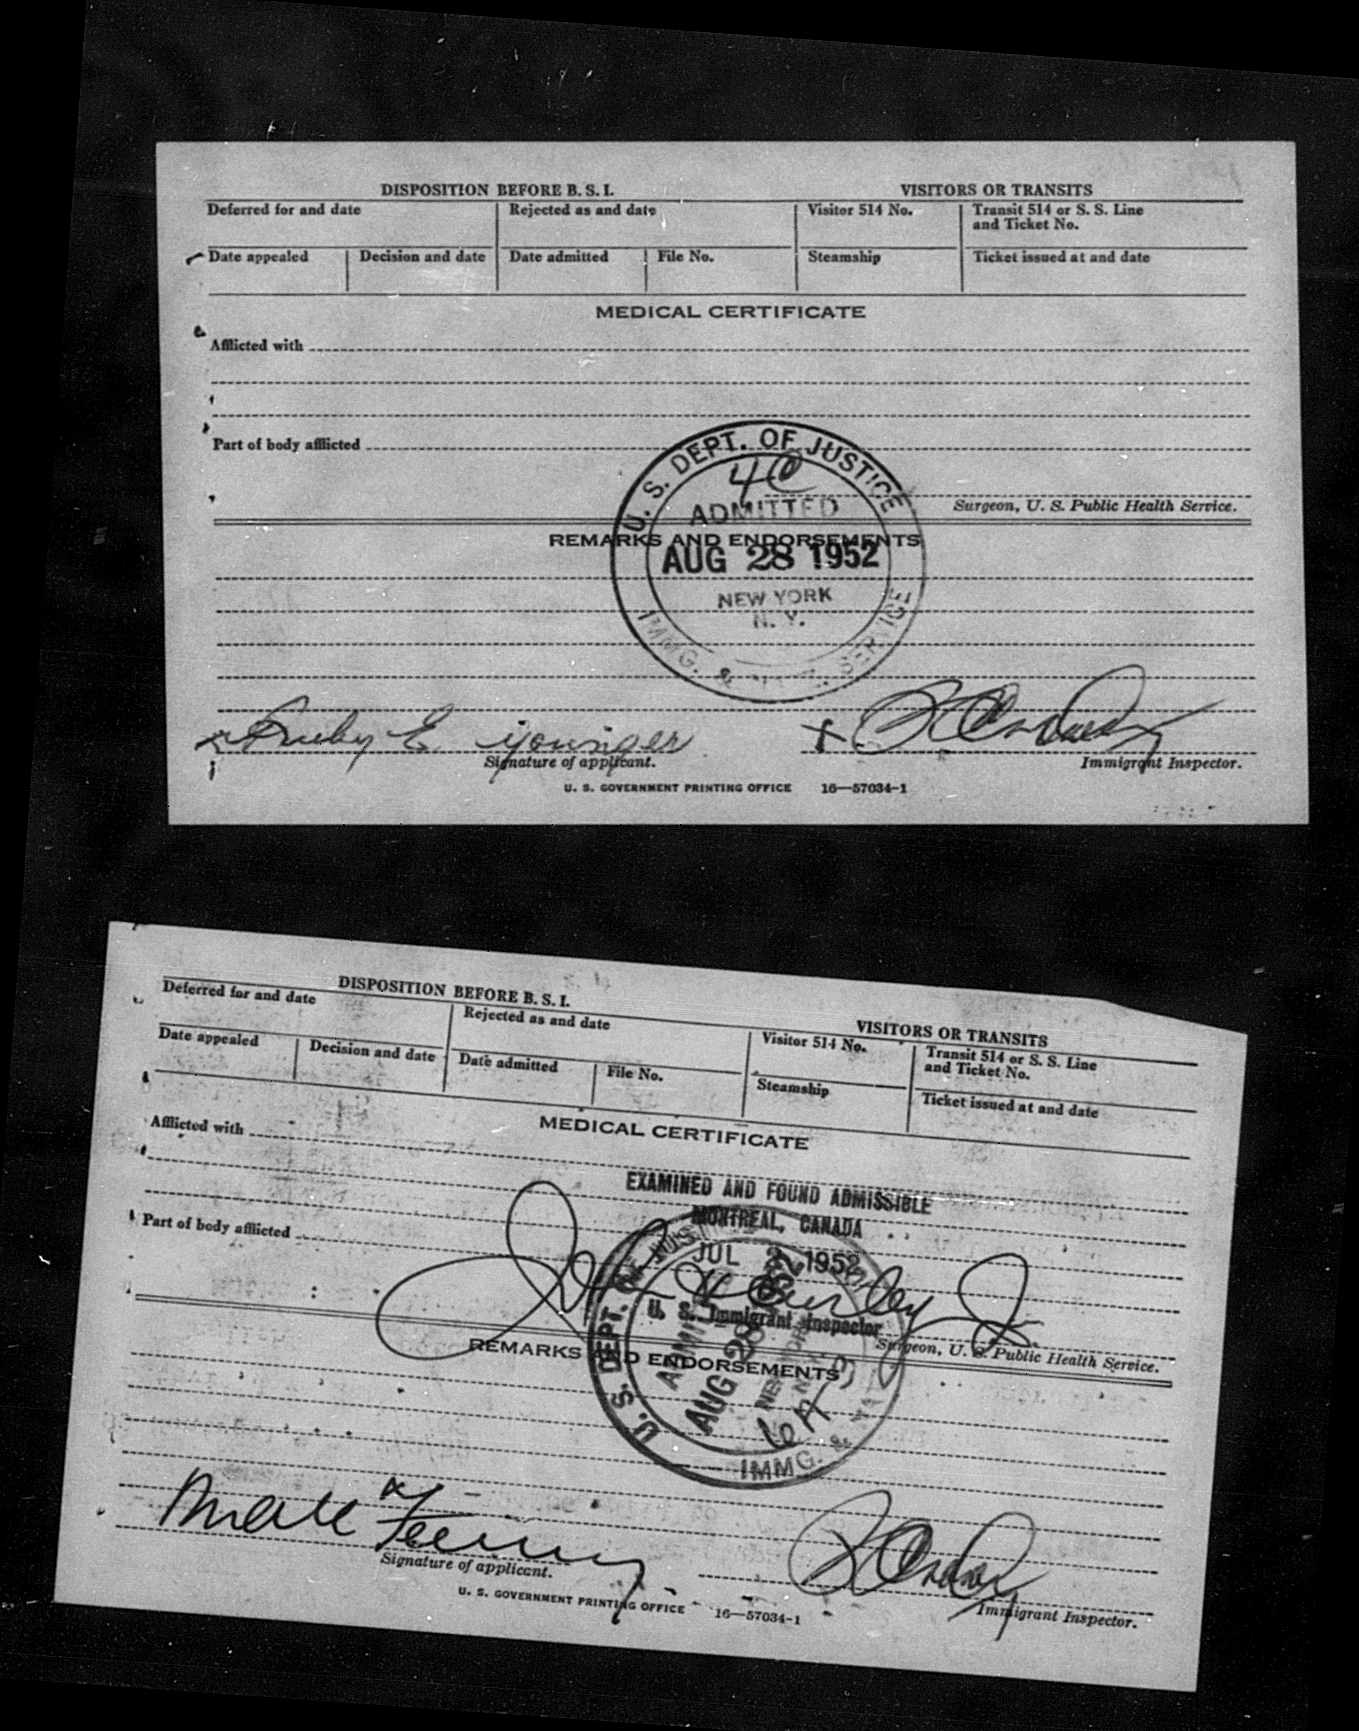 DISPOSITION BEFORE B. S. I. VISITORS OR TRANSITS
Deferred for and date Rejected as and date Visitor 514 No. Transit 514 or S. S. Line
and Ticket No.
Date appealed Decision and date Date admitted File No. Steamship Ticket issued at and date
MEDICAL CERTIFICATE
Afflicted with
Part of body afflicted
U. S. DEPT. OF JUSTICE
4C
ADMITTED
Surgeon, U. S. Public Health Service.
REMARKS AND ENDORSEMENTS
AUG 28 1952
NEW YORK
N. Y.
IMMG. & SERVICE
Ruby E. Younger
Signature of applicant. Immigrant Inspector.
U. S. GOVERNMENT PRINTING OFFICE 16—57034-1
DISPOSITION BEFORE B. S. I. VISITORS OR TRANSITS
Deferred for and date Rejected as and date Visitor 514 No. Transit 514 or S. S. Line
and Ticket No.
Date appealed Decision and date Date admitted File No. Steamship Ticket issued at and date
MEDICAL CERTIFICATE
Afflicted with
EXAMINED AND FOUND ADMISSIBLE
MONTREAL, CANADA
Part of body afflicted
JUL 2 1952
U. S. Immigrant Inspector
Surgeon, U. S. Public Health Service.
REMARKS AND ENDORSEMENTS
U. S. DEPT. OF JUST
AUG 28
IMMG. &
Signature of applicant.
Immigrant Inspector.
U. S. GOVERNMENT PRINTING OFFICE 16—57034-1